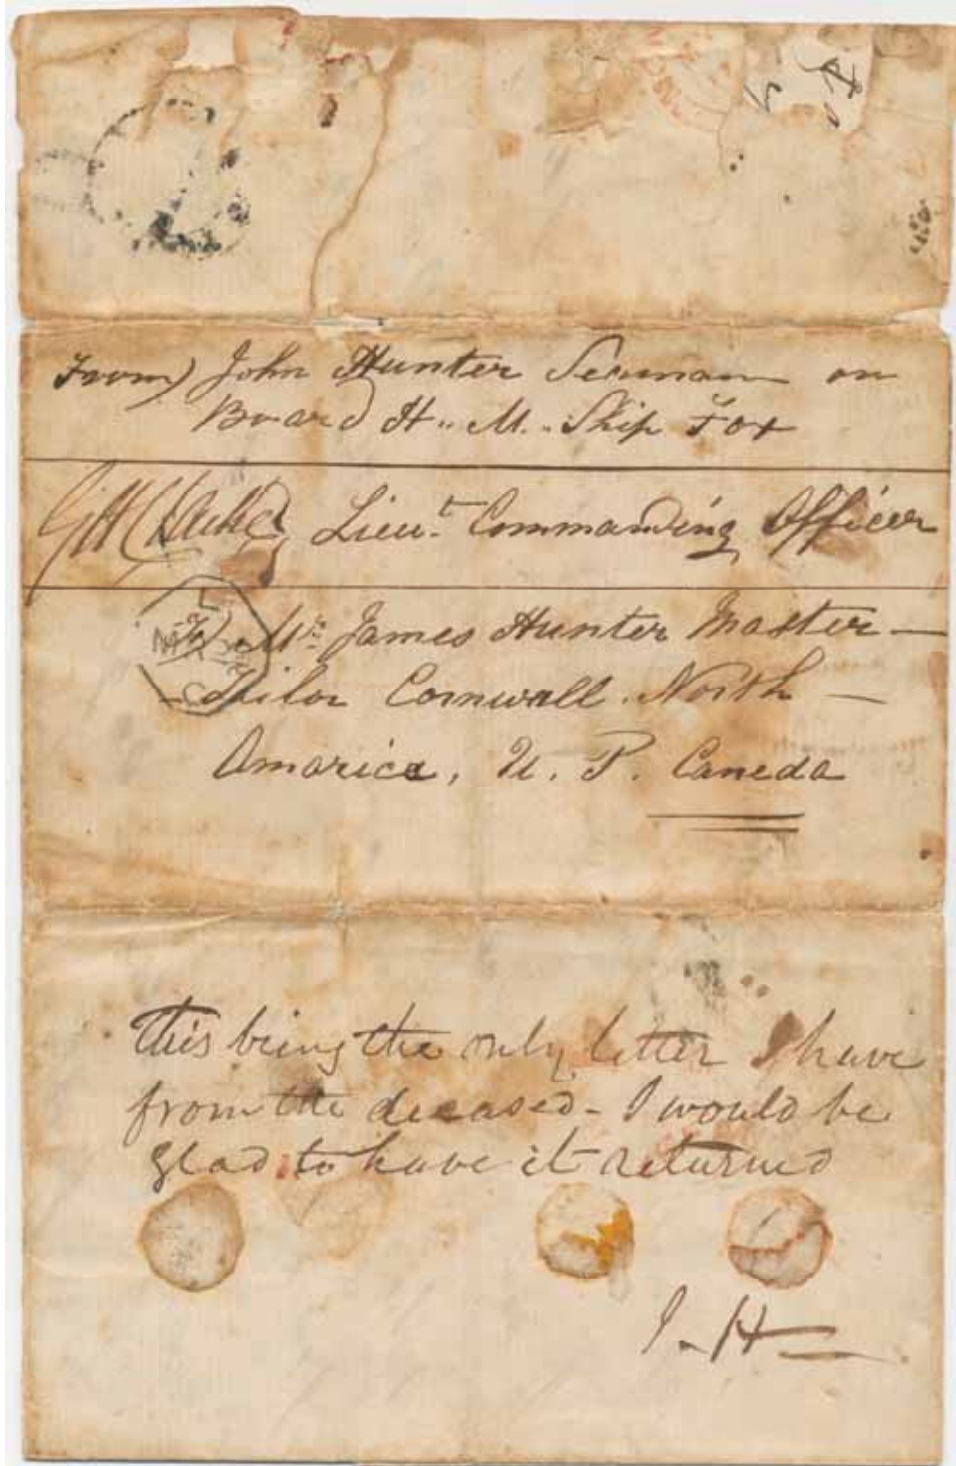 From) John Hunter Seaman on
Board H.. M.. Ship Fox
Lieut. Commanding Officer
To) Mr. James Hunter Master —
Tailor Cornwall. North —
Amarica, U. P. Caneda
this being the only letter I have
from the deceased - I would be
glad to have it returned
J. H